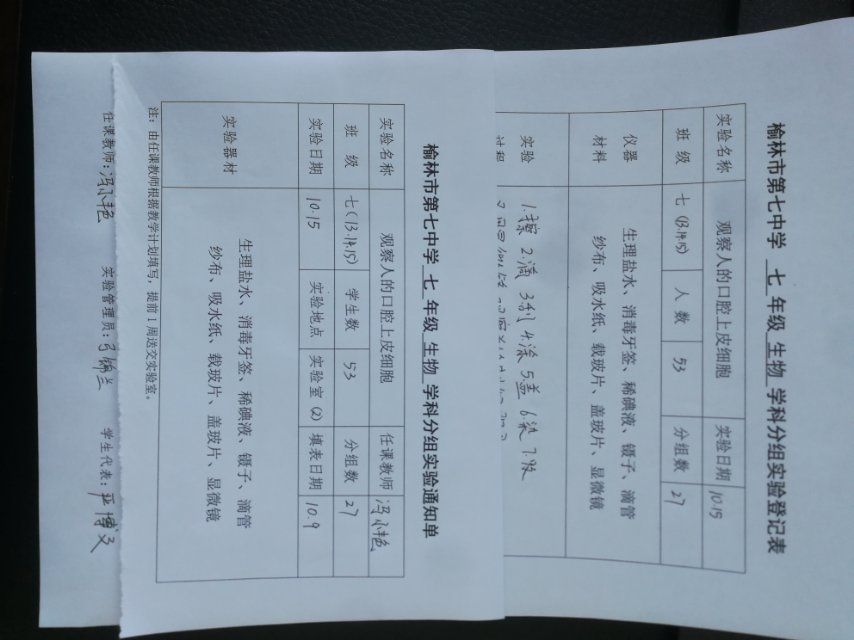 榆林市第七中学 七 年级 生物 学科分组实验登记表
实验名称 观察人的口腔上皮细胞 实验日期 10.15
班 级 七(13.14.15) 人 数 53 分组数 27
仪器
材料
生理盐水、消毒牙签、稀碘液、镊子、滴管
纱布、吸水纸、载玻片、盖玻片、显微镜
实验
过程
1.擦 2.滴 3.刮 4.涂 5.盖 6.染 7.吸
榆林市第七中学 七 年级 生物 学科分组实验通知单
实验名称 观察人的口腔上皮细胞 任课教师 冯小艳
班 级 七(13.14.15) 学生数 53 分组数 27
实验日期 10.15 实验地点 实验室(2) 填表日期 10.9
实验器材
生理盐水、消毒牙签、稀碘液、镊子、滴管
纱布、吸水纸、载玻片、盖玻片、显微镜
注：由任课教师根据教学计划填写，提前1周送交实验室。
任课教师：冯小艳 实验管理员： 学生代表：